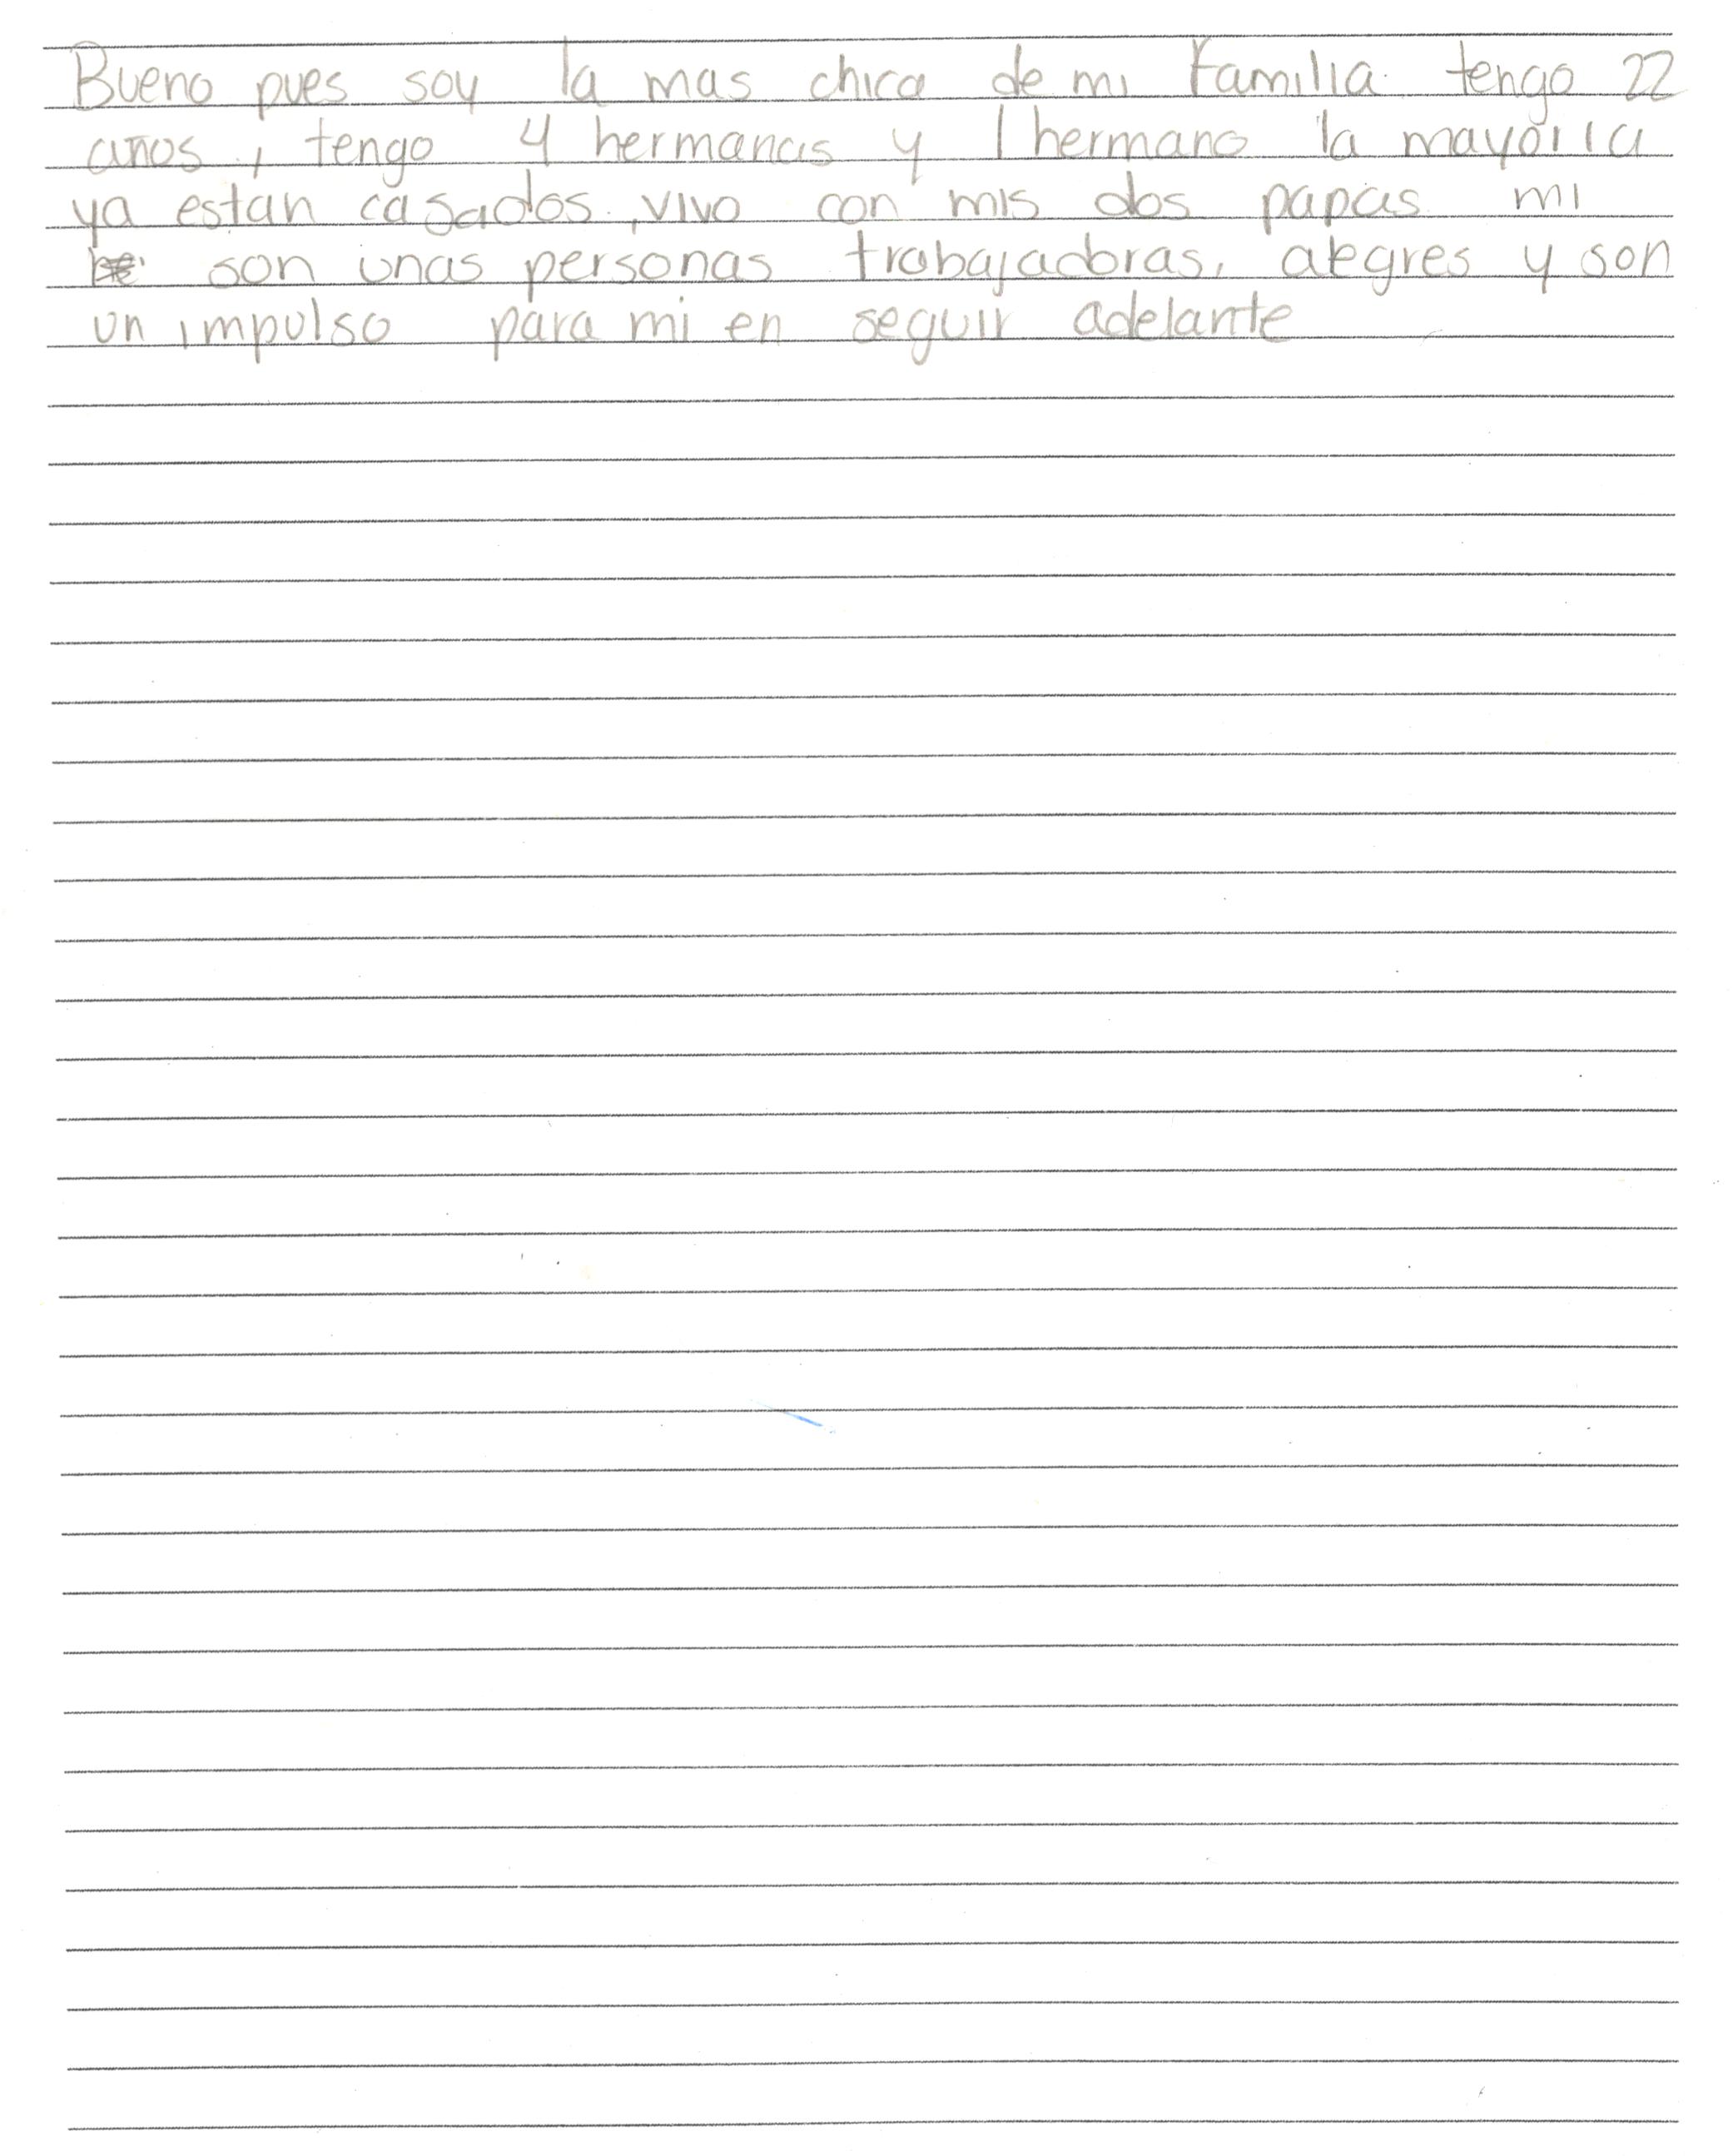 Bueno pues soy la mas chica de mi Familia. tengo 22
años, tengo 4 hermanas y 1 hermano la mayoria
ya estan casados, vivo con mis dos papas mi
son unas personas trabajadoras, alegres y son
un impulso para mi en seguir adelante